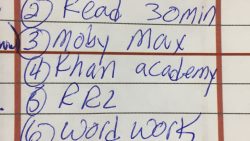 ② Read 30min
③ Moby Max
④ Khan academy
⑤ RRL
⑥ Word Work